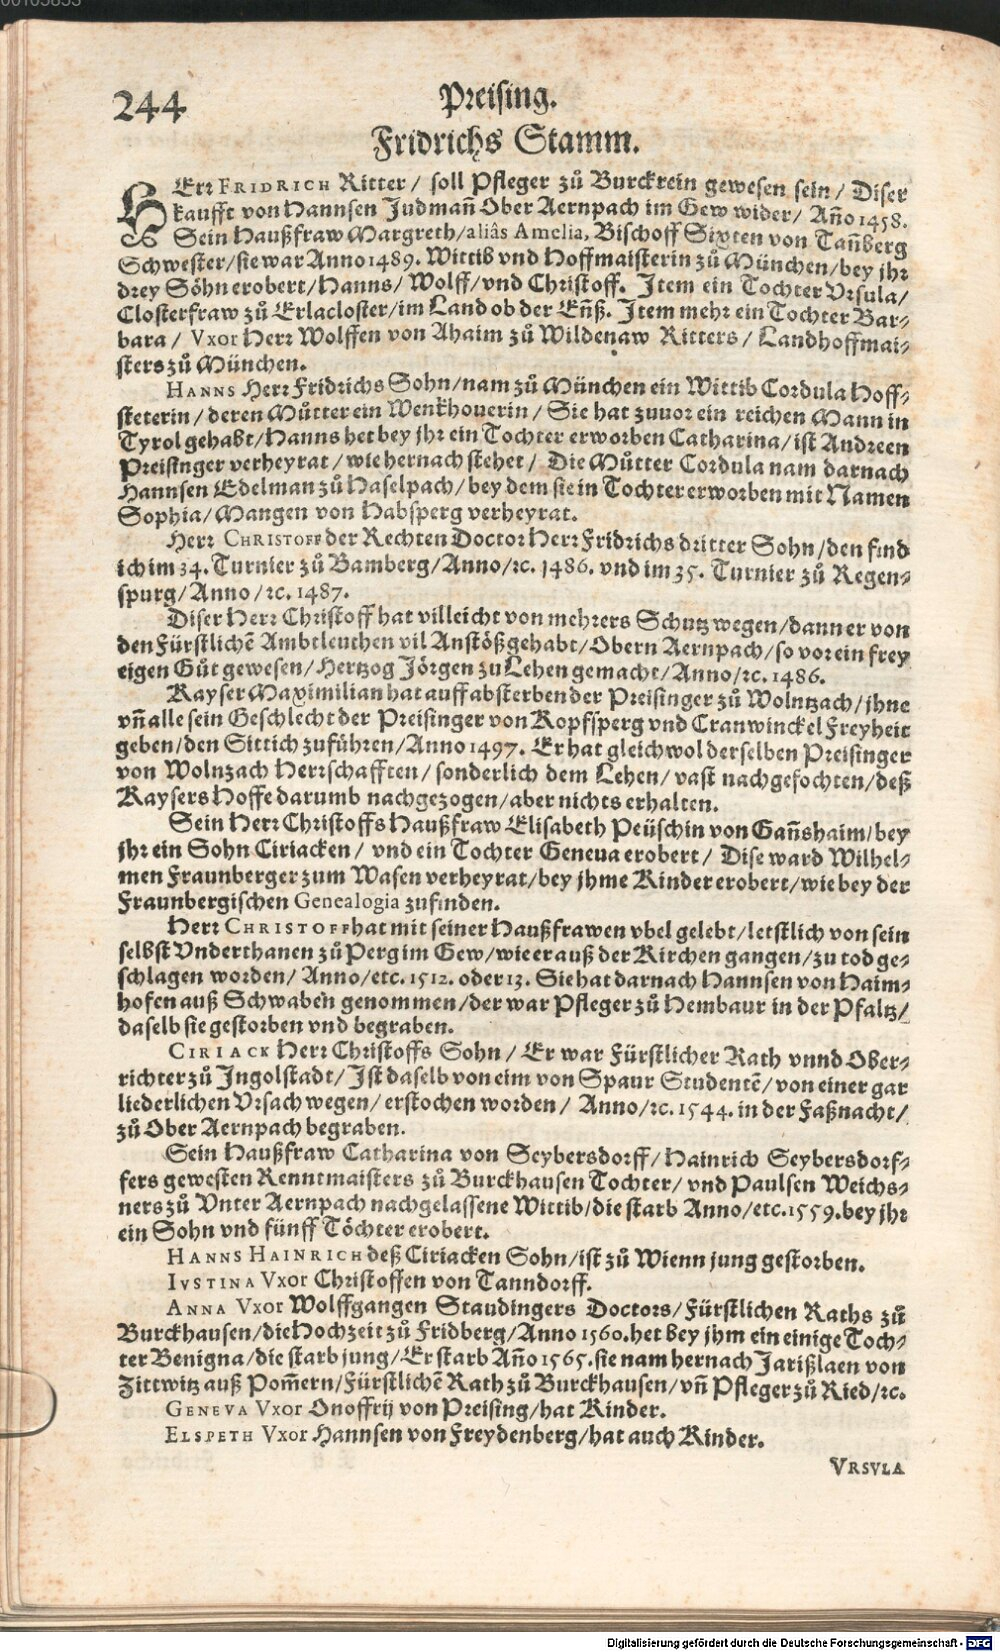 244
Preising.
Fridrichs Stamm.
HErr FRIDRICH Ritter / soll Pfleger zů Burckrein gewesen sein / Diser
kaufft von Hannsen Judmañ Ober Aernpach im Gew wider / Año 1458.
Sein Haußfraw Margreth / aliâs Amelia, Bischoff Sixten von Tañberg
Schwester / sie war Anno 1489. Wittib vnd Hoffmaisterin zů München / bey jhr
drey Söhn erobert / Hanns / Wolff / vnd Christoff. Item ein Tochter Vrsula /
Closterfraw zů Erlacloster / im Land ob der Eñß. Item mehr ein Tochter Bar-
bara / Vxor Herr Wolffen von Ahaim zů Wildenaw Ritters / Landhoffmai-
sters zů München.
HANNS Herr Fridrichs Sohn / nam zů München ein Wittib Cordula Hoff-
steterin / deren Můtter ein Wenkhouerin / Sie hat zuuor ein reichen Mann in
Tyrol gehabt / Hanns het bey jhr ein Tochter erworben Catharina / ist Andreen
Preisinger verheyrat / wie hernach stehet / Die Můtter Cordula nam darnach
Hannsen Edelman zů Haselpach / bey dem sie in Tochter erworben mit Namen
Sophia / Mangen von Habsperg verheyrat.
Herr CHRISTOFF der Rechten Doctor Herr Fridrichs dritter Sohn / den find
ich im 34. Turnier zů Bamberg / Anno / ꝛc. 1486. vnd im 35. Turnier zů Regen-
spurg / Anno / ꝛc. 1487.
Diser Herr Christoff hat villeicht von mehrers Schutz wegen / dann er von
den Fürstlichē Ambtleuthen vil Anstöß gehabt / Obern Aernpach / so vor ein frey
eigen Gůt gewesen / Hertzog Jörgen zu Lehen gemacht / Anno / ꝛc. 1486.
Kayser Maximilian hat auff absterben der Preisinger zů Wolntzach / jhne
vñ alle sein Geschlecht der Preisinger von Kopfsperg vnd Cranwinckel Freyheit
geben / den Sittich zuführen / Anno 1497. Er hat gleichwol derselben Preisinger
von Wolnzach Herrschafften / sonderlich dem Lehen / vast nachgefochten / deß
Kaysers Hoffe darumb nachgezogen / aber nichts erhalten.
Sein Herr Christoffs Haußfraw Elisabeth Peüschin von Gañshaim / bey
jhr ein Sohn Ciriacken / vnd ein Tochter Geneua erobert / Dise ward Wilhel-
men Fraunberger zum Wasen verheyrat / bey jhme Kinder erobert / wie bey der
Fraunbergischen Genealogia zufinden.
Herr CHRISTOFF hat mit seiner Haußfrawen vbel gelebt / letstlich von sein
selbst Vnderthanen zů Perg im Gew / wie er auß der Kirchen gangen / zu tod ge-
schlagen worden / Anno / etc. 1512. oder 13. Sie hat darnach Hannsen von Haim-
hofen auß Schwaben genommen / der war Pfleger zů Hembaur in der Pfaltz /
daselb sie gestorben vnd begraben.
CIRIACK Herr Christoffs Sohn / Er war Fürstlicher Rath vnnd Ober-
richter zů Ingolstadt / Ist daselb von eim von Spaur Studentē / von einer gar
liederlichen Vrsach wegen / erstochen worden / Anno / ꝛc. 1544. in der Faßnacht /
zů Ober Aernpach begraben.
Sein Haußfraw Catharina von Seybersdorff / Hainrich Seybersdorf-
fers gewesten Renntmaisters zů Burckhausen Tochter / vnd Paulsen Weichs-
ners zů Vnter Aernpach nachgelassene Wittib / die starb Anno / etc. 1559. bey jhr
ein Sohn vnd fünff Töchter erobert.
HANNS HAINRICH deß Ciriacken Sohn / ist zů Wienn jung gestorben.
IVSTINA Vxor Christoffen von Tanndorff.
ANNA Vxor Wolffgangen Staudingers Doctors / Fürstlichen Raths zů
Burckhausen / die Hochzeit zů Fridberg / Anno 1560. het bey jhm ein einige Toch-
ter Benigna / die starb jung / Er starb Año 1565. sie nam hernach Jarißlaen von
Zittwitz auß Pom̃ern / Fürstlichē Rath zů Burckhausen / vñ Pfleger zů Ried / ꝛc.
GENEVA Vxor Onoffrij von Preising / hat Kinder.
ELSPETH Vxor Hannsen von Freydenberg / hat auch Kinder.
VRSVLA
Digitalisierung gefördert durch die Deutsche Forschungsgemeinschaft - DFG